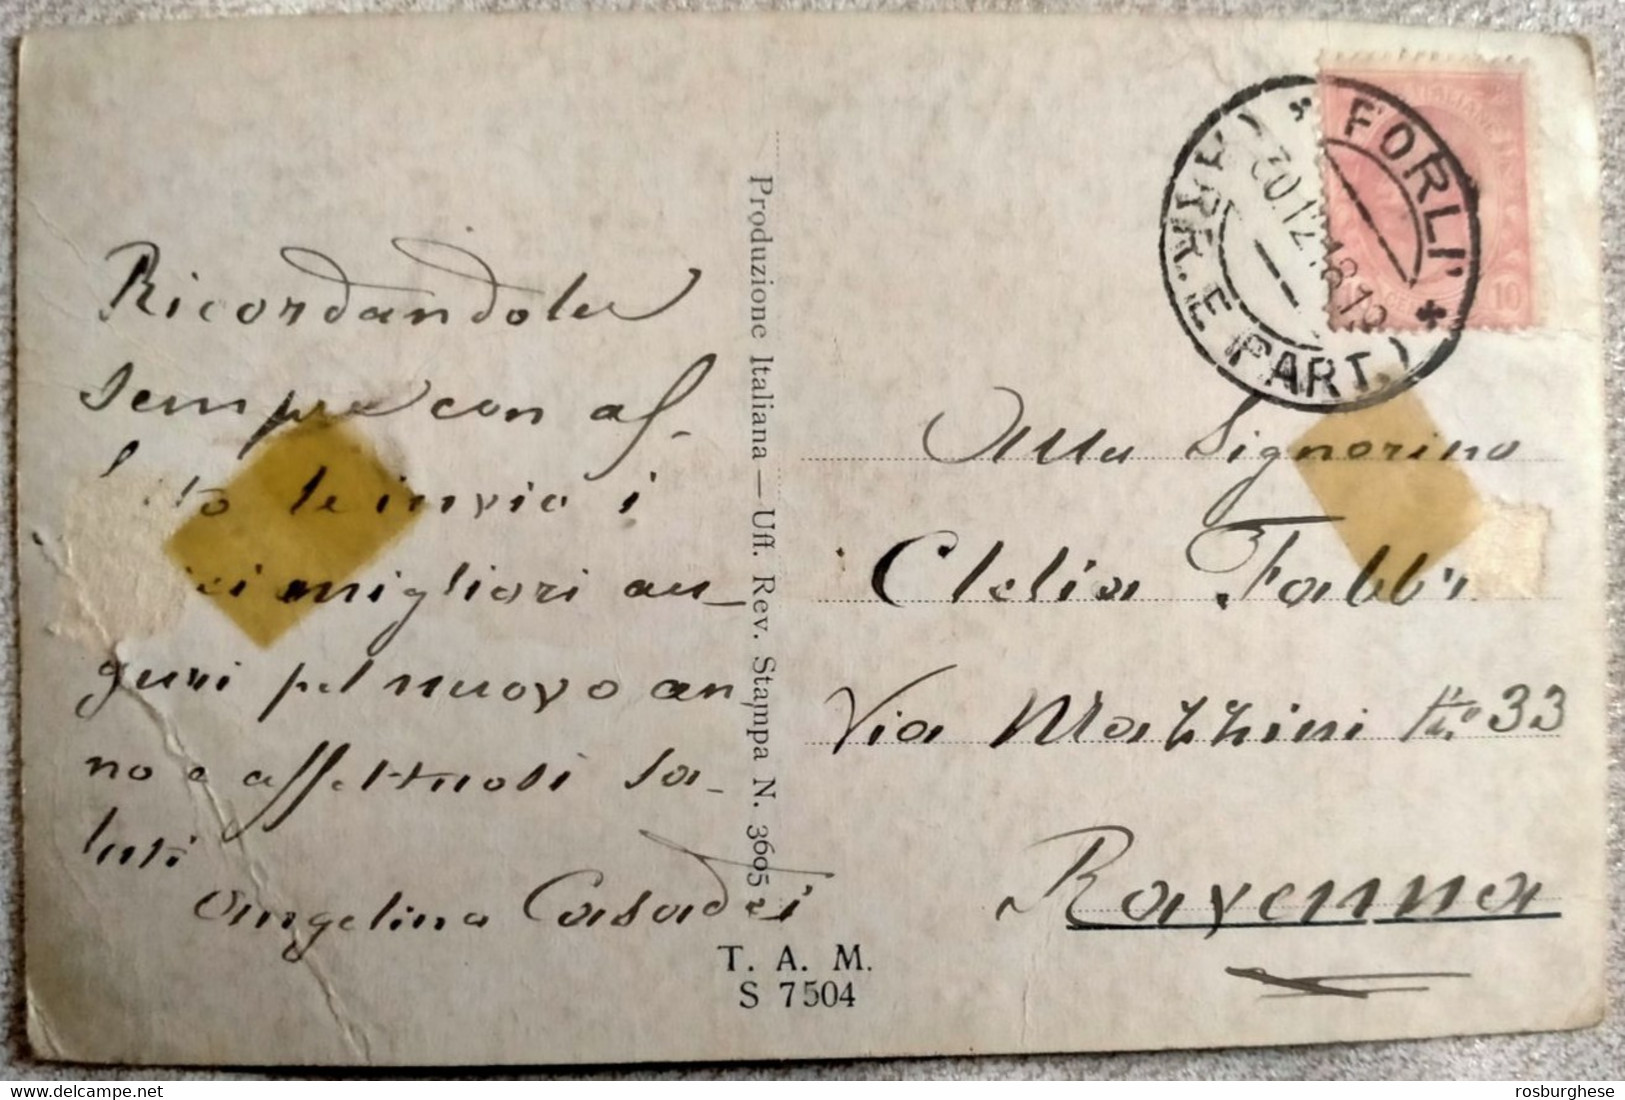 Ricordandole
sempre con af-
to le invio i
miei migliori au-
guri pel nuovo an
no e affettuosi sa-
luti
Angelina Casadei
Produzione Italiana — Uff. Rev. Stampa N. 3605
T. A. M.
S 7504
* FORLI' *
(ARR. E PART.)
30.12.18.19
10
Alla Signorina
Clelia Fabbri
Via Mazzini N. 33
Ravenna
delcampe.net
rosburghese